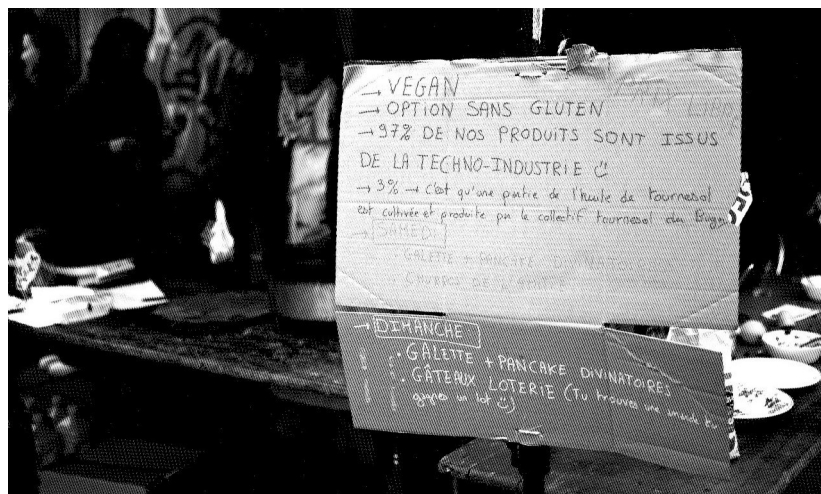 → VEGAN
→ OPTION SANS GLUTEN
→ 97% DE NOS PRODUITS SONT ISSUS
DE LA TECHNO-INDUSTRIE
→ 3% → C'est qu'une partie de l'huile de tournesol
est cultivée et produite par le collectif tournesol du Bugey
→ SAMEDI
• GALETTE + PANCAKE DIVINATOIRES
• CHURROS DE L'
PRIX LIBRE
→ DIMANCHE
• GALETTE + PANCAKE DIVINATOIRES
• GÂTEAUX LOTERIE (Tu trouves une amande tu
gagnes un lot)